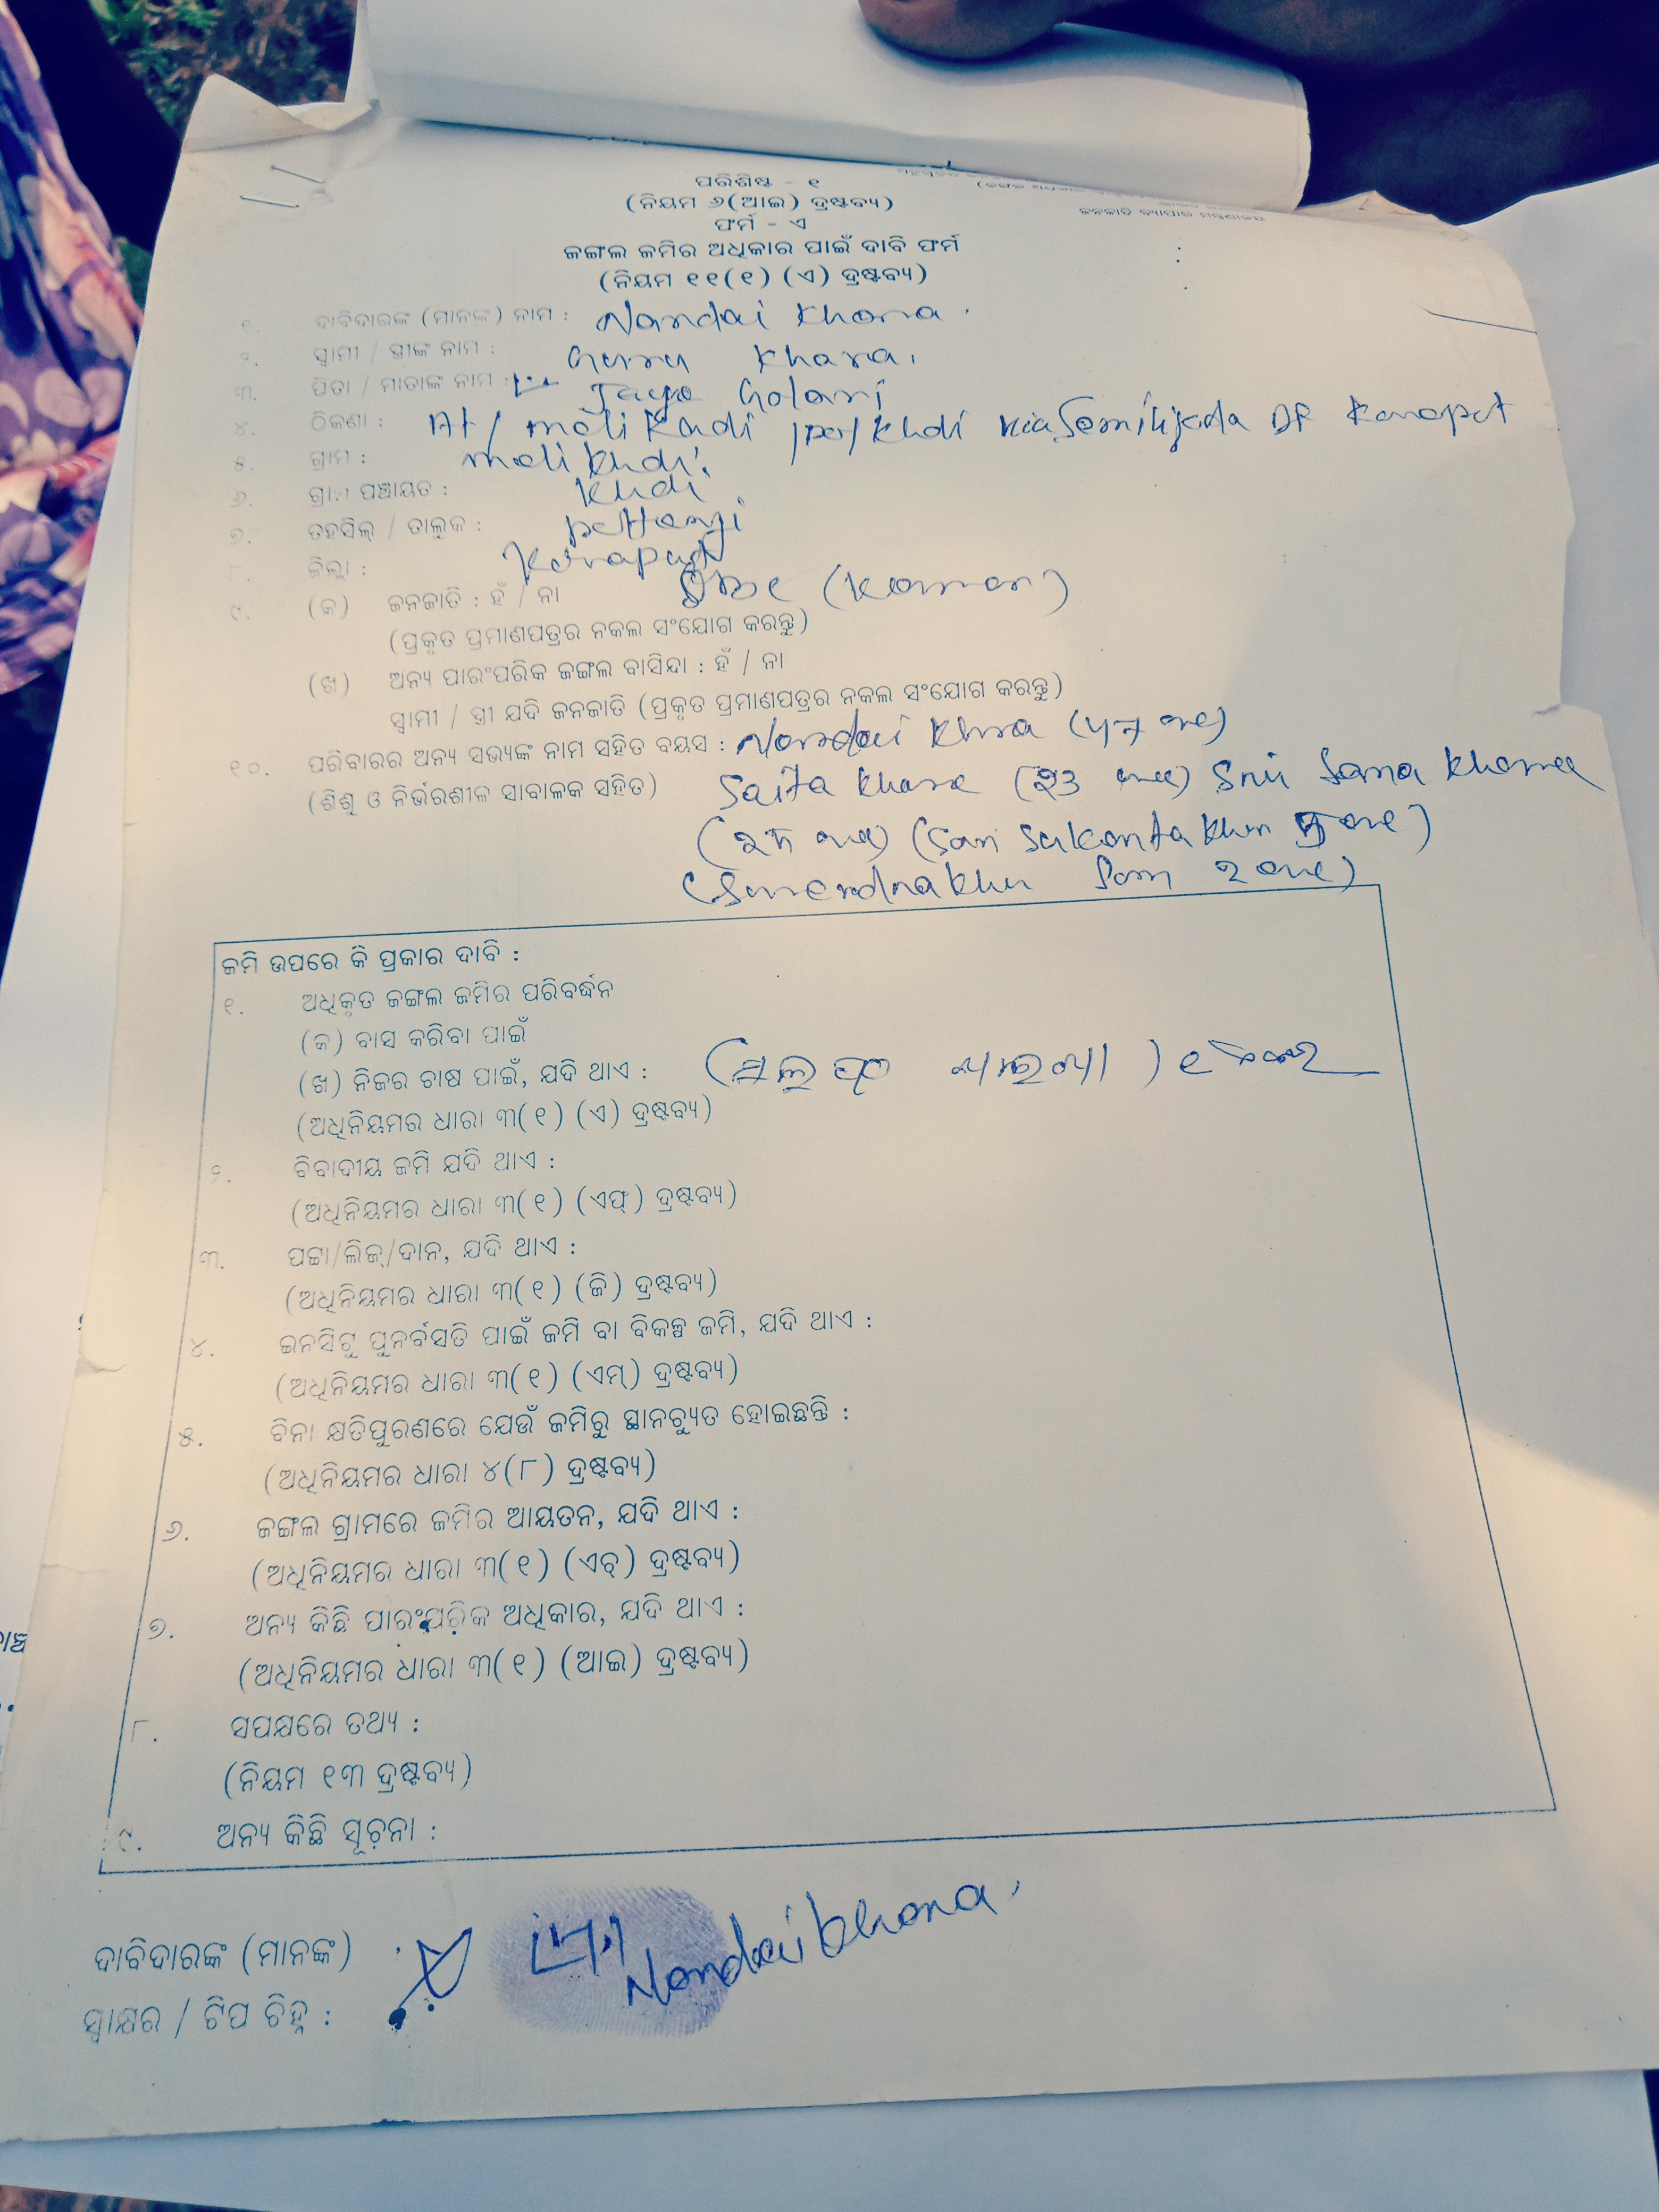 ପରିଶିଷ୍ଟ - ୧
(ନିୟମ ୬(ଆଇ) ଦ୍ରଷ୍ଟବ୍ୟ)
ଫର୍ମ - ଏ
ଜଙ୍ଗଲ ଜମିର ଅଧିକାର ପାଇଁ ଦାବି ଫର୍ମ
(ନିୟମ ୧୧(୧) (ଏ) ଦ୍ରଷ୍ଟବ୍ୟ)
୧. ଦାବିଦାରଙ୍କ (ମାନଙ୍କ) ନାମ : Nandai Khara.
୨. ସ୍ୱାମୀ / ସ୍ତ୍ରୀଙ୍କ ନାମ : Guru Khara.
୩. ପିତା / ମାତାଙ୍କ ନାମ : Golari
୪. ଠିକଣା : At/
୫. ଗ୍ରାମ :
୬. ଗ୍ରାମ ପଞ୍ଚାୟତ : Khdi
୭. ତହସିଲ୍ / ତାଲୁକ : pottangi
୮. ଜିଲ୍ଲା : Koraput
୯. (କ) ଜନଜାତି : ହଁ / ନା OBC (Kamar)
(ପ୍ରକୃତ ପ୍ରମାଣପତ୍ରର ନକଲ ସଂଯୋଗ କରନ୍ତୁ)
(ଖ) ଅନ୍ୟ ପାରଂପରିକ ଜଙ୍ଗଲ ବାସିନ୍ଦା : ହଁ / ନା
ସ୍ୱାମୀ / ସ୍ତ୍ରୀ ଯଦି ଜନଜାତି (ପ୍ରକୃତ ପ୍ରମାଣପତ୍ରର ନକଲ ସଂଯୋଗ କରନ୍ତୁ)
୧୦. ପରିବାରର ଅନ୍ୟ ସଭ୍ୟଙ୍କ ନାମ ସହିତ ବୟସ : Nandai Khra
(ଶିଶୁ ଓ ନିର୍ଭରଶୀଳ ସାବାଳକ ସହିତ) Saita Khara (୨୩
ଜମି ଉପରେ କି ପ୍ରକାର ଦାବି :
୧. ଅଧିକୃତ ଜଙ୍ଗଲ ଜମିର ପରିବର୍ଦ୍ଧନ
(କ) ବାସ କରିବା ପାଇଁ
(ଖ) ନିଜର ଚାଷ ପାଇଁ, ଯଦି ଥାଏ :
(ଅଧିନିୟମର ଧାରା ୩(୧) (ଏ) ଦ୍ରଷ୍ଟବ୍ୟ)
୨. ବିବାଦୀୟ ଜମି ଯଦି ଥାଏ :
(ଅଧିନିୟମର ଧାରା ୩(୧) (ଏଫ୍) ଦ୍ରଷ୍ଟବ୍ୟ)
୩. ପଟ୍ଟା/ଲିଜ୍/ଦାନ, ଯଦି ଥାଏ :
(ଅଧିନିୟମର ଧାରା ୩(୧) (ଜି) ଦ୍ରଷ୍ଟବ୍ୟ)
୪. ଇନସିଟୁ ପୁନର୍ବସତି ପାଇଁ ଜମି ବା ବିକଳ୍ପ ଜମି, ଯଦି ଥାଏ :
(ଅଧିନିୟମର ଧାରା ୩(୧) (ଏମ୍) ଦ୍ରଷ୍ଟବ୍ୟ)
୫. ବିନା କ୍ଷତିପୂରଣରେ ଯେଉଁ ଜମିରୁ ସ୍ଥାନଚ୍ୟୁତ ହୋଇଛନ୍ତି :
(ଅଧିନିୟମର ଧାରା ୪(୮) ଦ୍ରଷ୍ଟବ୍ୟ)
୬. ଜଙ୍ଗଲ ଗ୍ରାମରେ ଜମିର ଆୟତନ, ଯଦି ଥାଏ :
(ଅଧିନିୟମର ଧାରା ୩(୧) (ଏଚ୍) ଦ୍ରଷ୍ଟବ୍ୟ)
୭. ଅନ୍ୟ କିଛି ପାରଂପରିକ ଅଧିକାର, ଯଦି ଥାଏ :
(ଅଧିନିୟମର ଧାରା ୩(୧) (ଆଇ) ଦ୍ରଷ୍ଟବ୍ୟ)
୮. ସପକ୍ଷରେ ତଥ୍ୟ :
(ନିୟମ ୧୩ ଦ୍ରଷ୍ଟବ୍ୟ)
୯. ଅନ୍ୟ କିଛି ସୂଚନା :
ଦାବିଦାରଙ୍କ (ମାନଙ୍କ)
ସ୍ୱାକ୍ଷର / ଟିପ ଚିହ୍ନ : Nandai Khara.